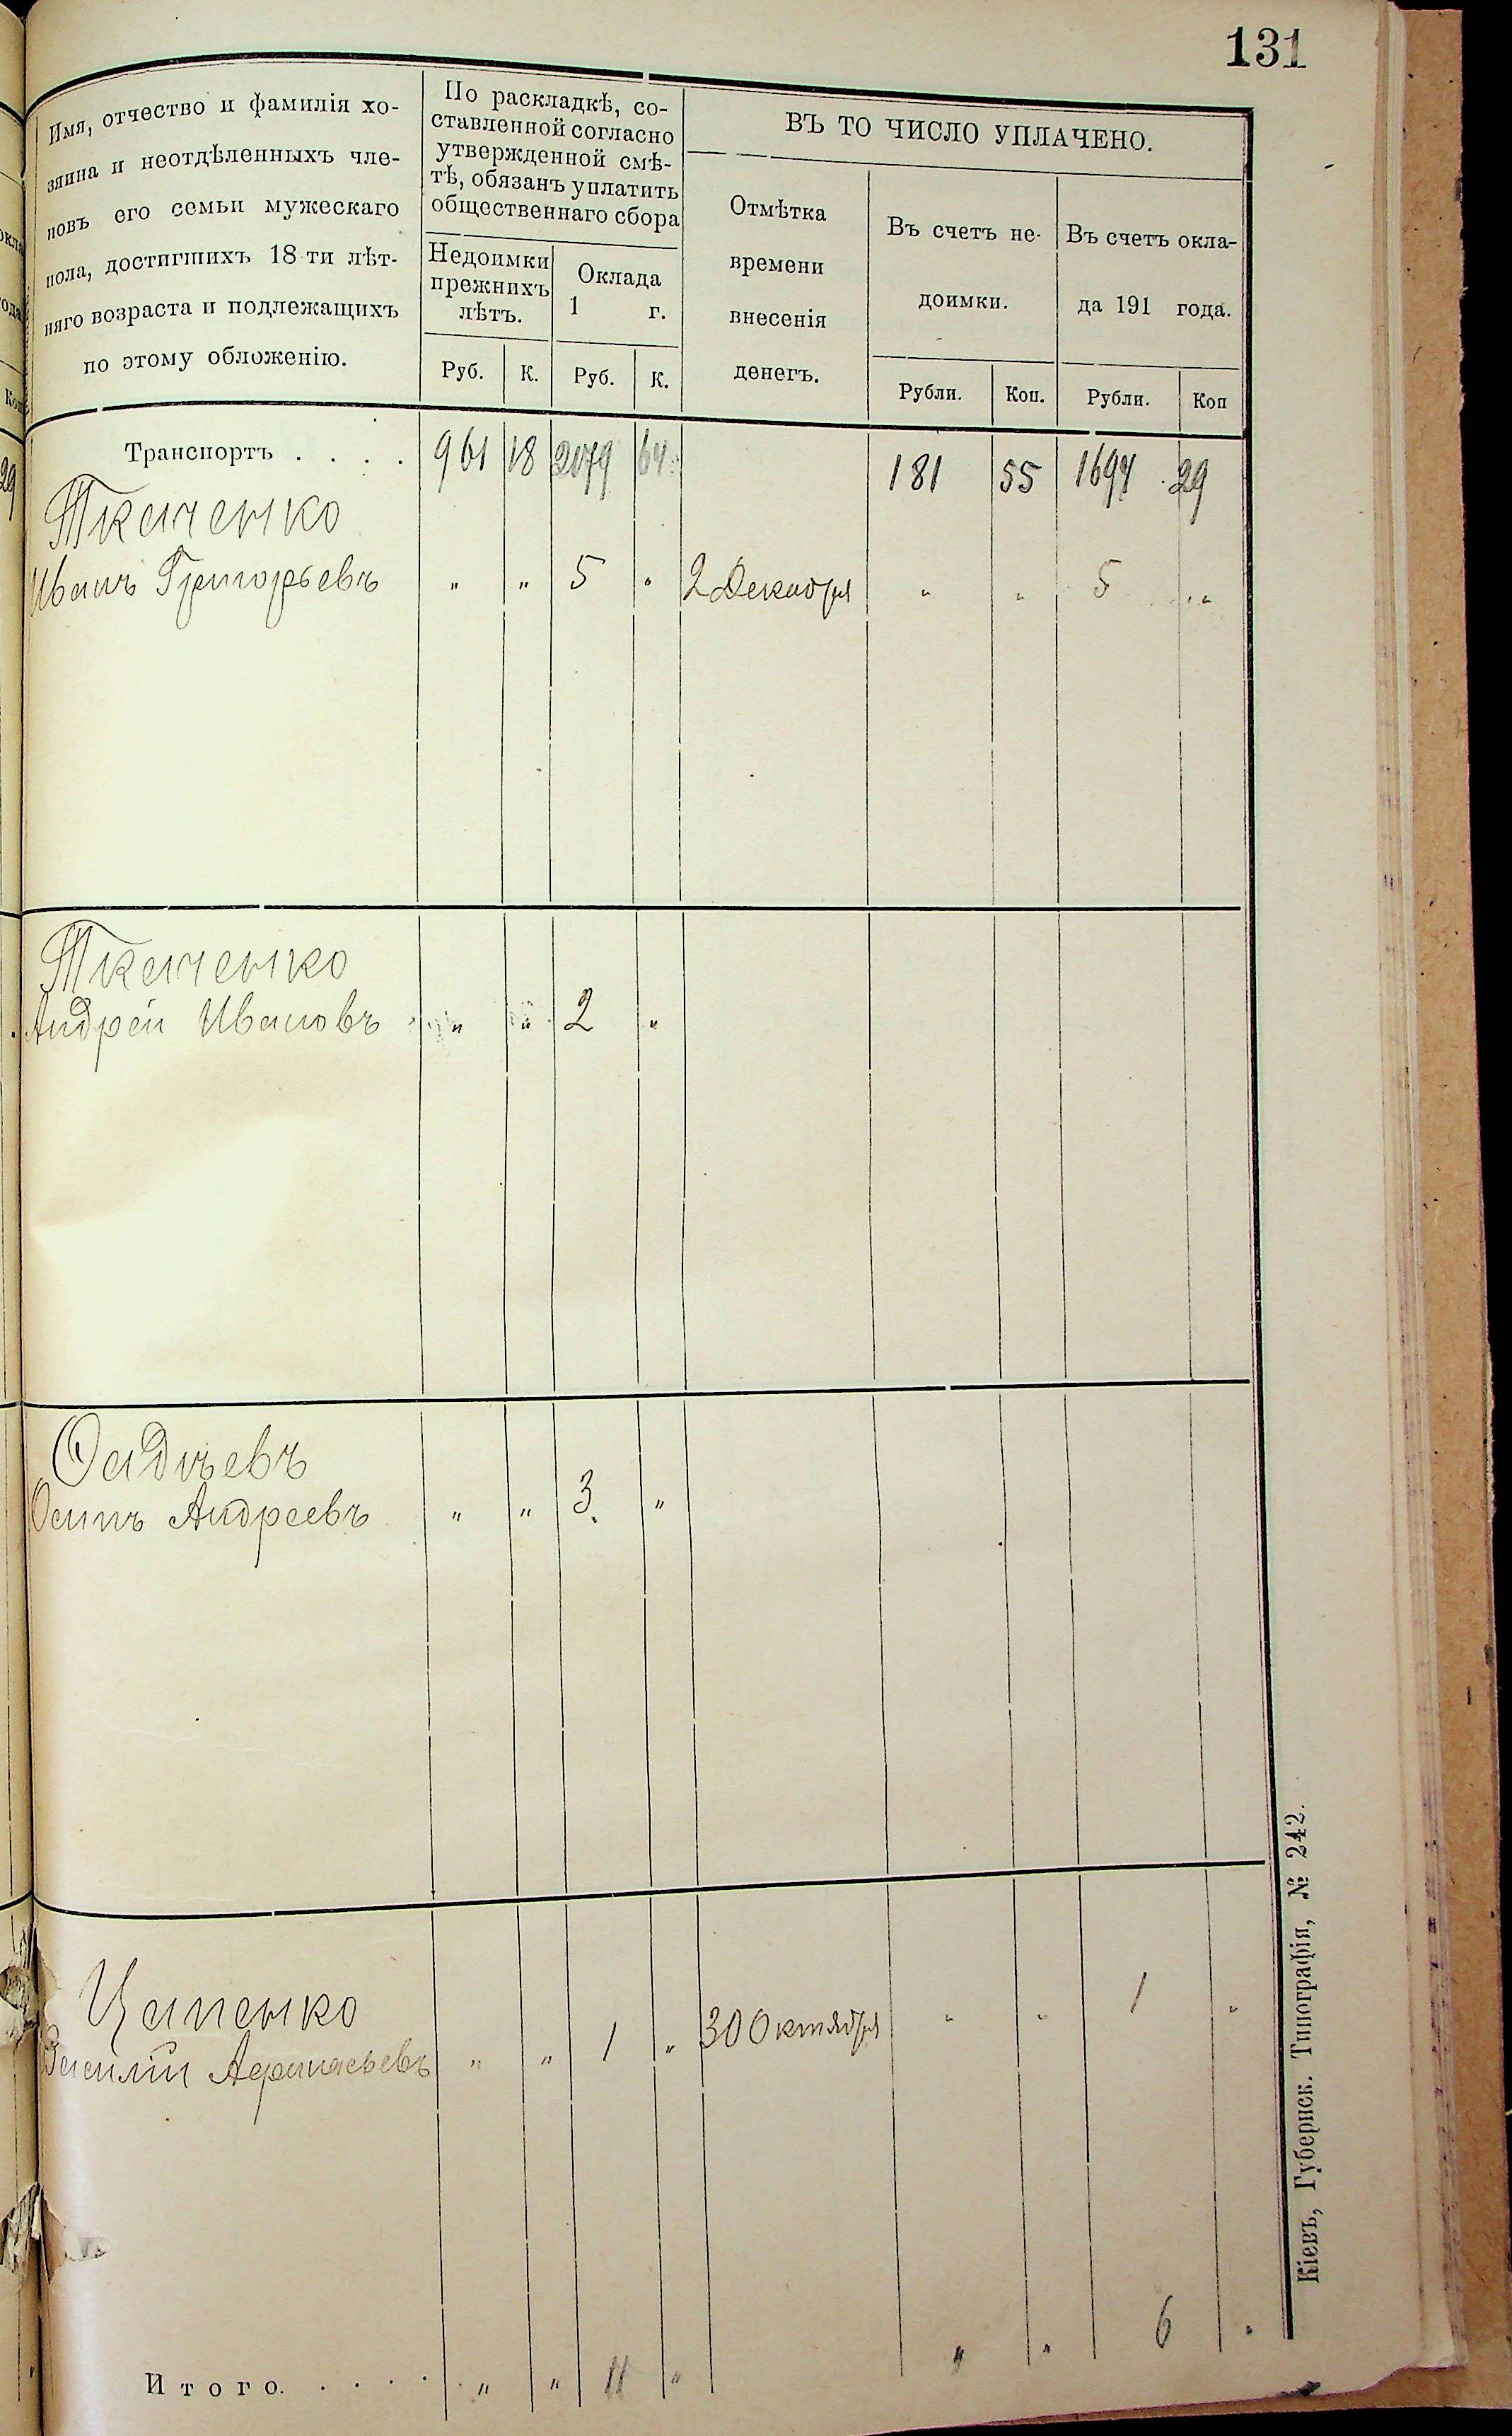 131
Имя, отчество и фамилія хо-
зяина и неотдѣленныхъ чле-
новъ его семьи мужескаго
пола, достигшихъ 18-ти лѣт-
няго возраста и подлежащихъ
по этому обложенію.
По раскладкѣ, со-
ставленной согласно
утвержденной смѣ-
тѣ, обязанъ уплатить
общественнаго сбора
Недоимки
прежнихъ
лѣтъ.
Оклада
1 г.
Руб. К. Руб. К.
ВЪ ТО ЧИСЛО УПЛАЧЕНО.
Отмѣтка
времени
внесенія
денегъ.
Въ счетъ не-
доимки.
Въ счетъ окла-
да 191 года.
Рубли. Коп. Рубли. Коп
Транспортъ . . . . 961 18 2079 64 181 55 1694 29
Ткаченко
Иванъ Григорьевъ " " 5 " 2 Декабря " " 5 "
Ткаченко
Андрей Ивановъ " " 2 "
Фадѣевъ
Осипъ Андреевъ " " 3 "
Цапенко
Василій Афанасьевъ " " 1 " 30 Октября " " 1 "
Итого. . . . . " " 11 " " " 6 "
Кіевъ, Губернск. Типографія, № 242.
29